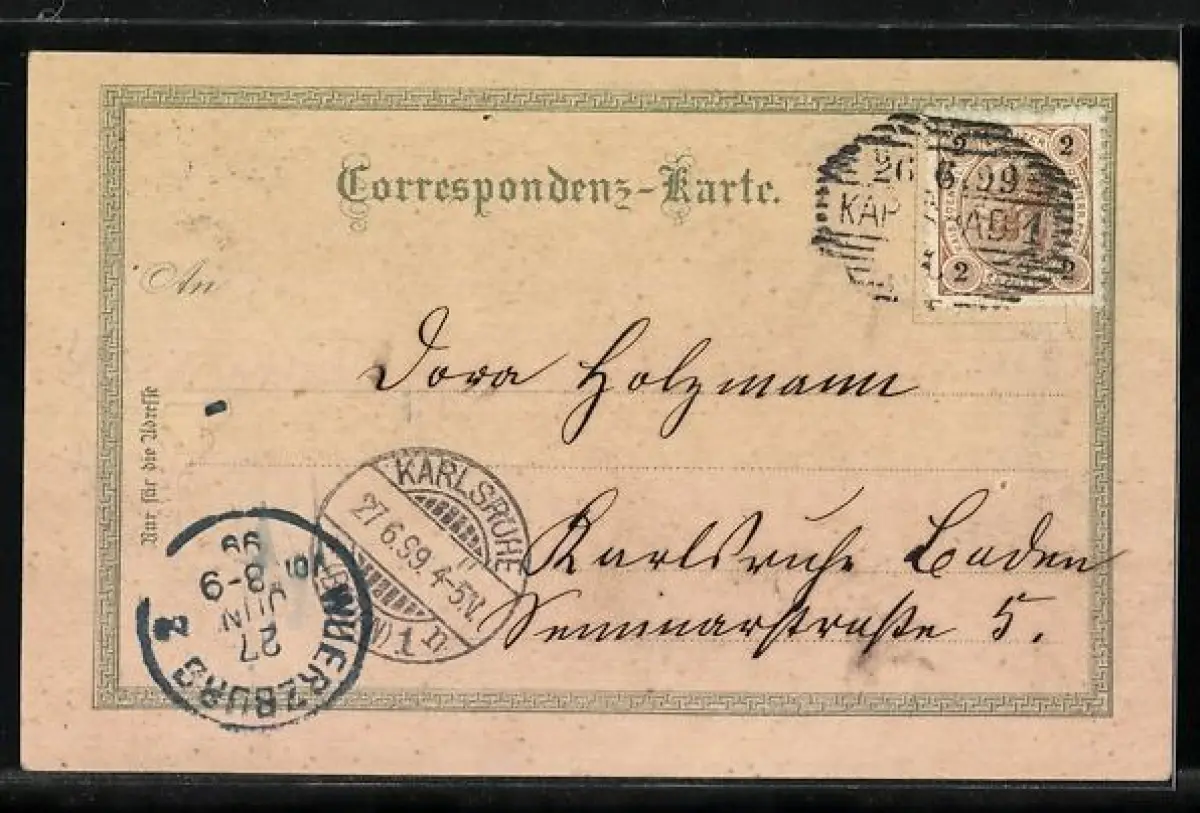 Correspondenz-Karte.
An
26 6.99
KAR AD 1
2 2
2 2
Nur für die Adresse
Dora Holzmann
Karlsruhe Baden
Seminarstraße 5.
KARLSRUHE
27.6.99. 4-5V.
1 n
WUERZBURG 2
27
JUN
8-9
99